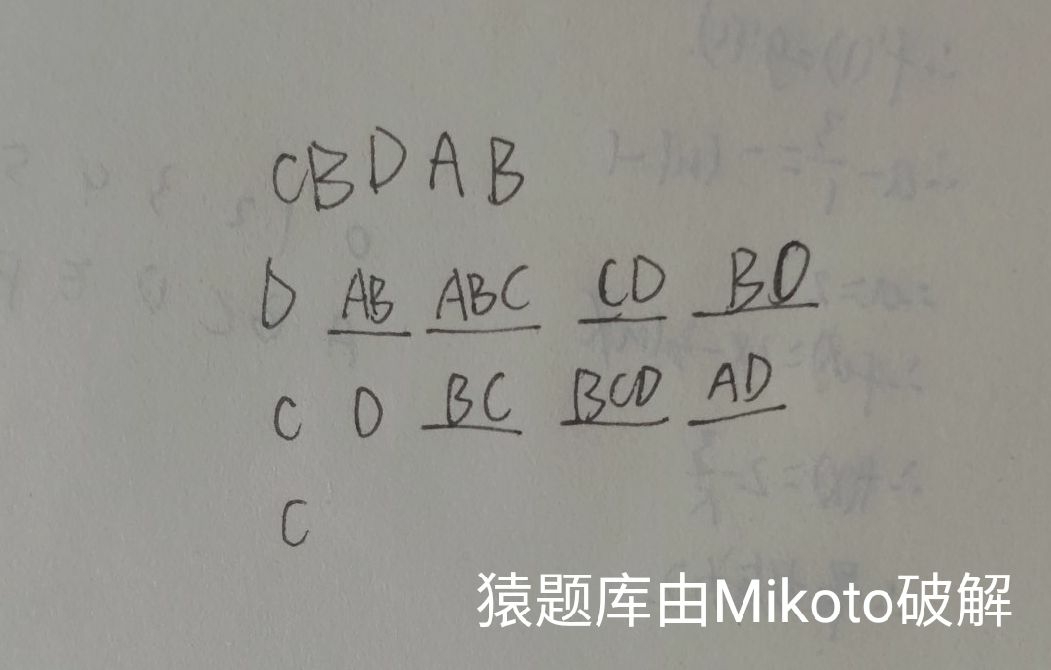 CBDAB
D AB ABC CD BD
C D BC BCD AD
C
猿题库由Mikoto破解